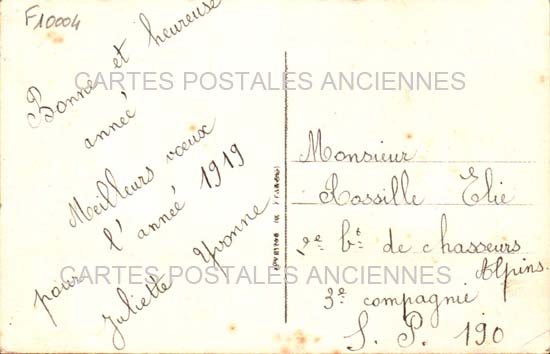 F10004
Bonne et heureuse
anneé
Meilleurs vœux
pour l'anneé 1919
Juliette Yvonne
CARTES POSTALES ANCIENNES
CARTES POSTALES ANCIENNES
Monsieur
Rossille Elie
bt de chasseurs
Alpins
3e compagnie
S. P. 190